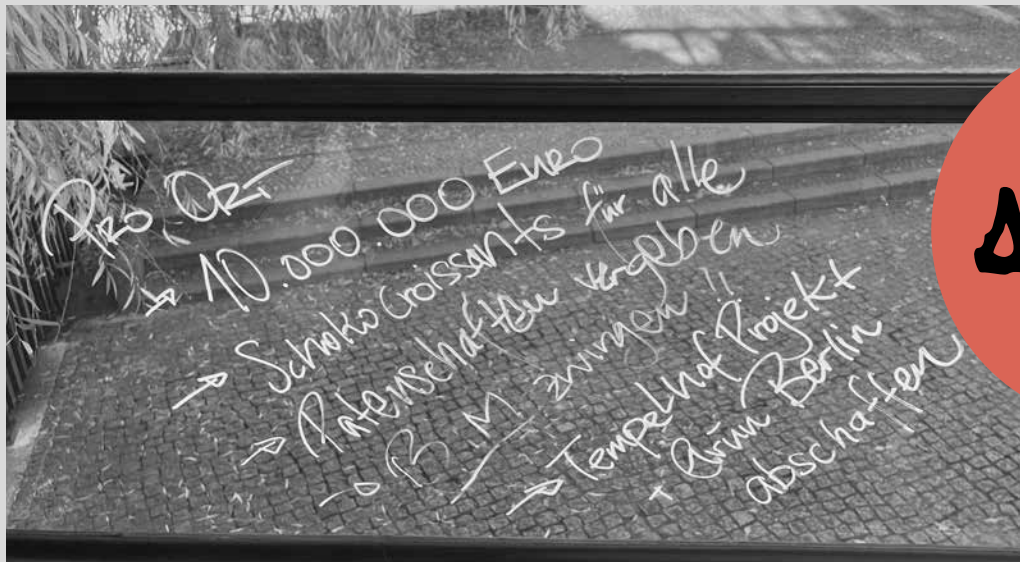 Pro Ort
→ 10.000.000 Euro
→ SchokoCroissants für alle
→ Patenschaften vergeben
→ B M zwingen!!
→ Tempelhof Projekt
+ Grün Berlin
abschaffen